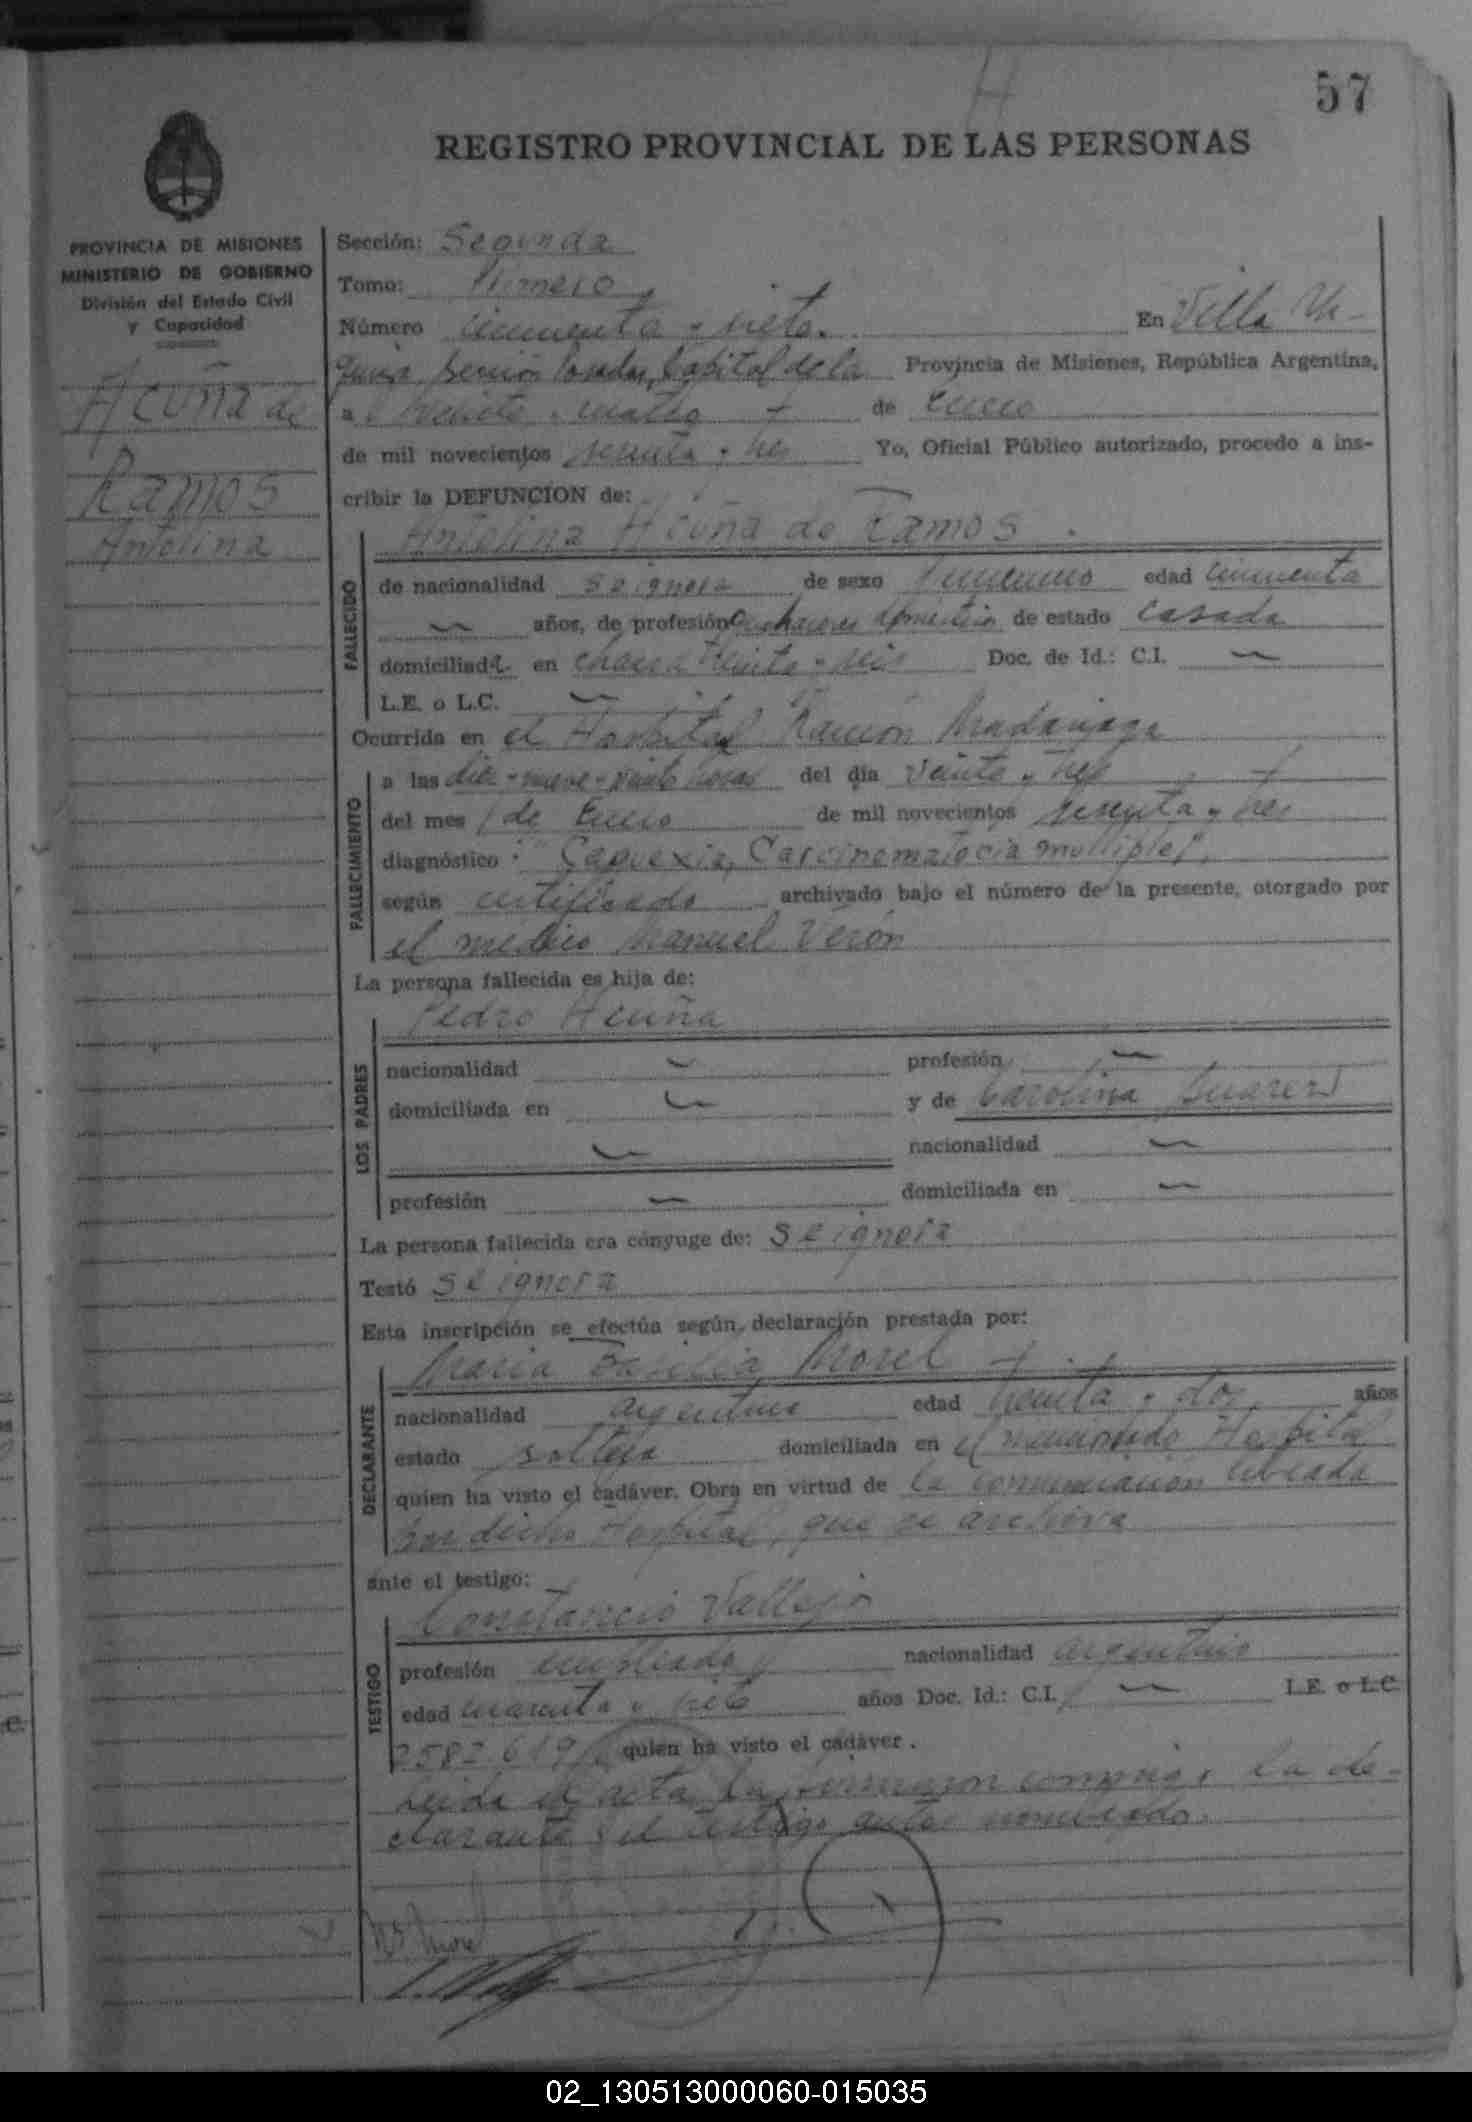 57
REGISTRO PROVINCIAL DE LAS PERSONAS
PROVINCIA DE MISIONES
MINISTERIO DE GOBIERNO
División del Estado Civil
y Capacidad
Acuña de
Ramos
Antolina
Sección: Segunda
Tomo: Primero
Número cincuenta y siete. En Villa Ur-
quiza, Sección Posadas, Capital de la Provincia de Misiones, República Argentina,
a veinte y cuatro de Enero
de mil novecientos sesenta y tres Yo, Oficial Público autorizado, procedo a ins-
cribir la DEFUNCION de:
Antolina Acuña de Ramos.
FALLECIDO
de nacionalidad se ignora de sexo femenino edad cincuenta
años, de profesión Quehaceres domésticos de estado casada
domiciliada en chacra treinta y seis Doc. de Id.: C.I.
L.E. o L.C.
Ocurrida en el Hospital Ramón Madariaga
FALLECIMIENTO
a las diez y nueve y veinte horas del día veinte y tres
del mes de Enero de mil novecientos sesenta y tres
diagnóstico: "Caquexia, Carcinomatocia multiples",
según certificado archivado bajo el número de la presente, otorgado por
el medico Manuel Verón
La persona fallecida es hija de:
LOS PADRES
Pedro Acuña
nacionalidad profesión
domiciliada en y de Carolina Suarez
nacionalidad
profesión domiciliada en
La persona fallecida era cónyuge de: se ignora
Testó se ignora
Esta inscripción se efectúa según declaración prestada por:
DECLARANTE
Maria Basilia Morel
nacionalidad argentina edad treinta y dos años
estado soltera domiciliada en el mencionado Hospital
quien ha visto el cadáver. Obra en virtud de la comunicación librada
por dicho Hospital, que se archiva
ante el testigo:
TESTIGO
Constancio Vallejo
profesión empleado nacionalidad argentino
edad cuarenta y siete años Doc. Id.: C.I. L.E. o L.C
2582619 quien ha visto el cadáver.
Leida el acta, la firmaron conmigo, la de-
clarante y el testigo antes nombrado.
M B Morel
02_130513000060-015035